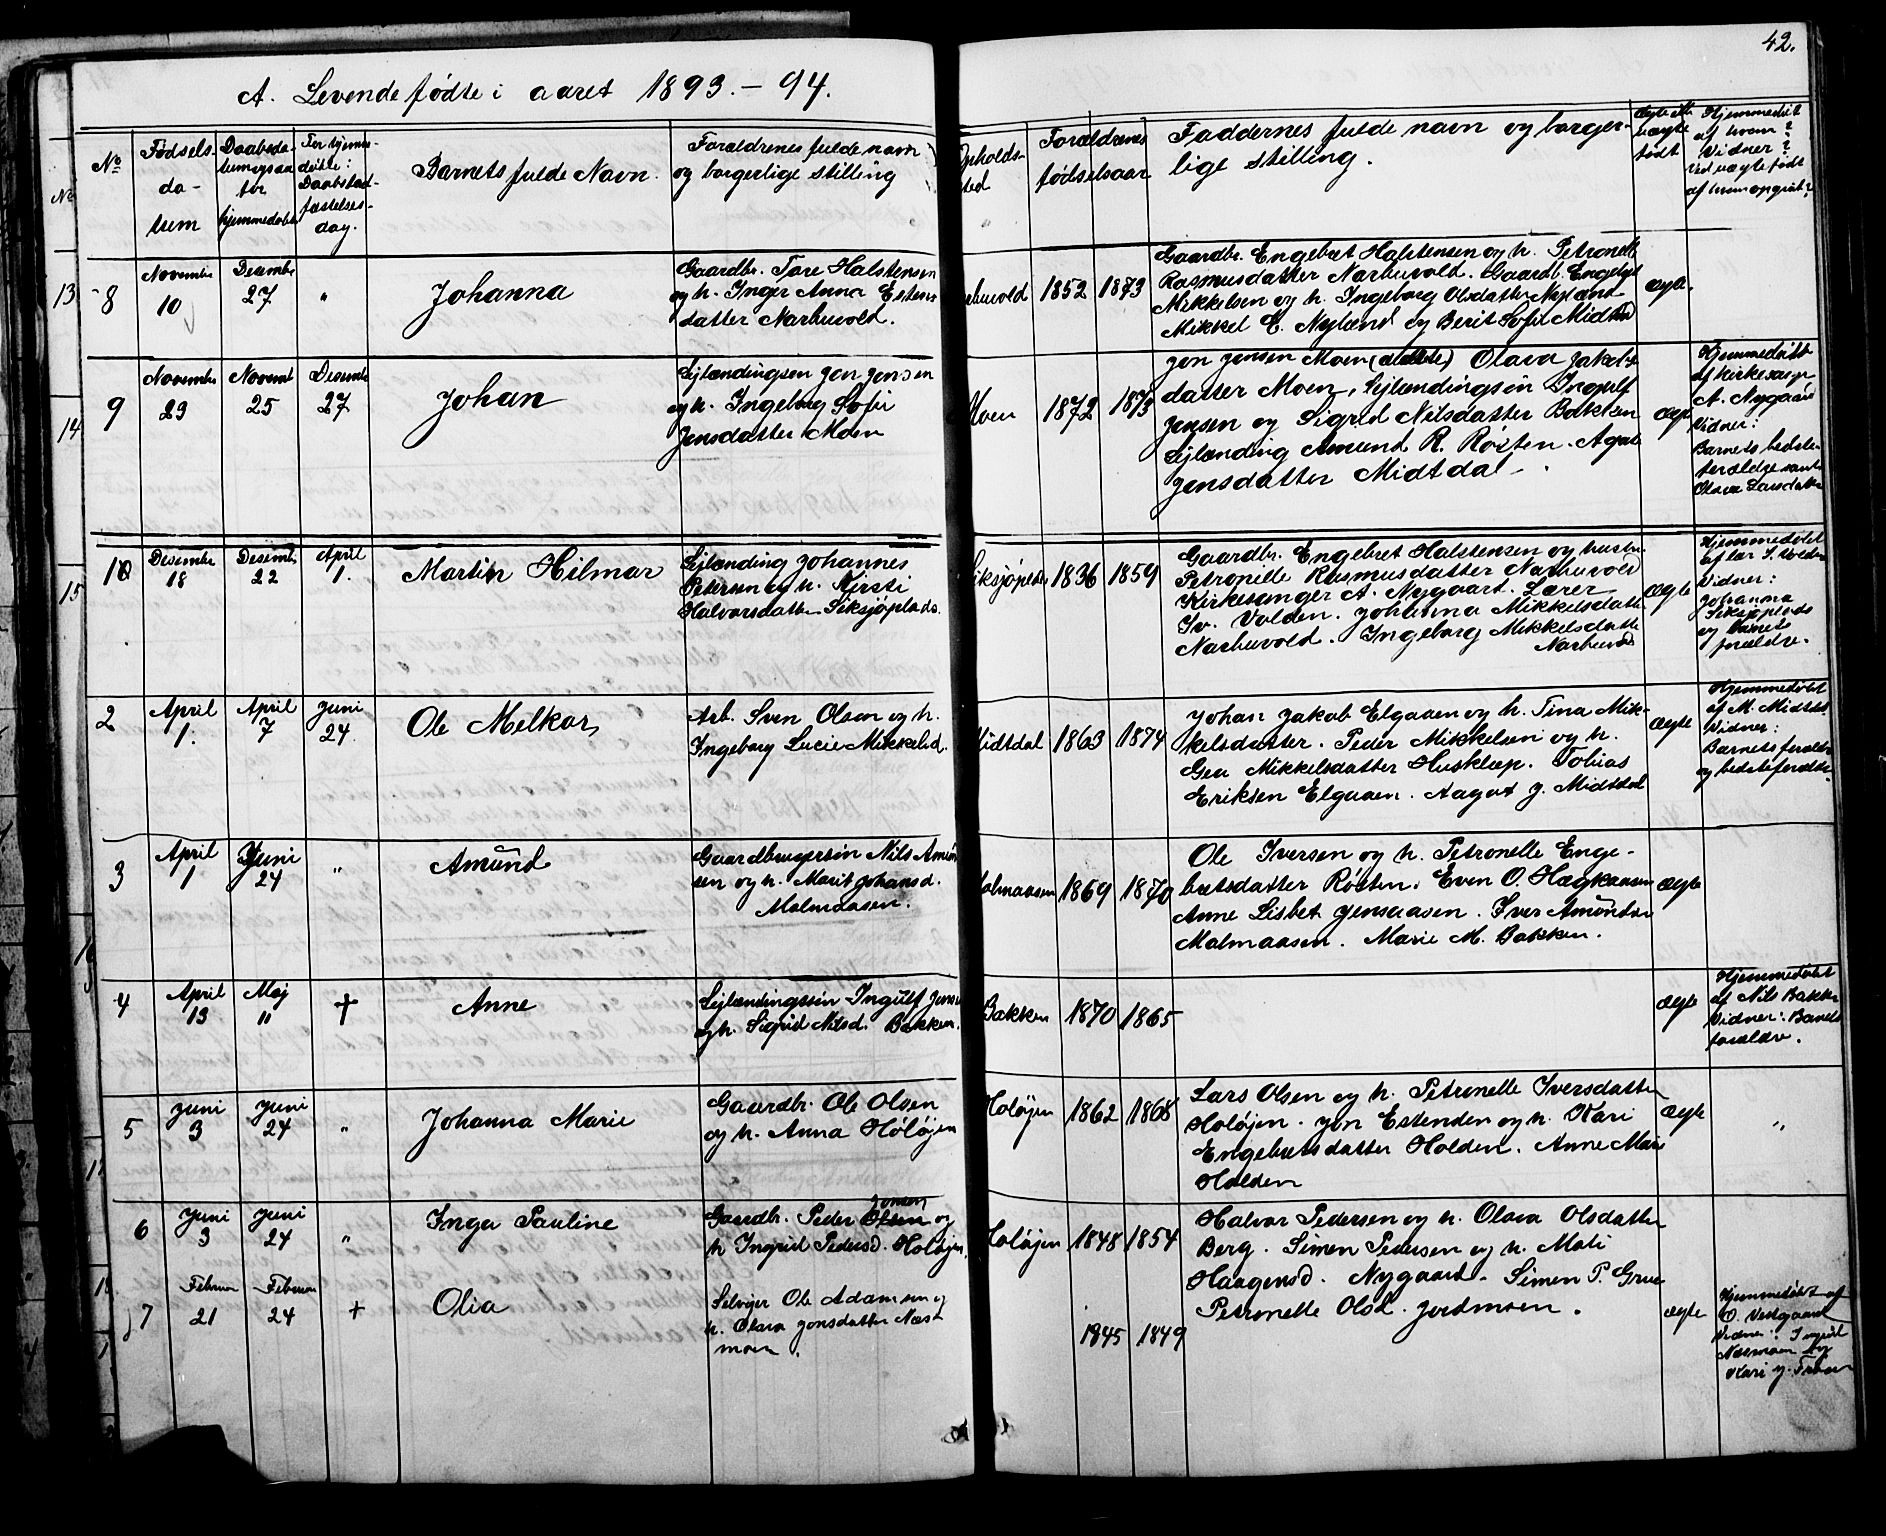 42.
A. Levende fødte i aaret 1893. - 94.
No
No
Fødsels-
da-
tum
Daabsda-
tum
hjemmedøbt
døbte:
Daabstad-
fæstelses-
dag.
Barnets fulde Navn.
Forældrenes fulde navn
og borgerlige stilling
Opholds-
sted
Forældrenes
fødselsaar
Faddernes fulde navn og borger-
lige stilling.
Ægte ell.
uægte
født
Hjemmedøbt
af hvem?
Vidner?
Ved uægte født
af hvem opgivet?
13
8
November
10
Desember
27
"
Johanna
Gaardbr. Tore Halstensen
og h. Inger Anna Estens-
datter Narbuvold.
Narbuvold
1852
1873
Gaardbr. Engebret Halstensen og h. Petronelle
Rasmusdatter Narbuvold. Gaardb. Engebret
Mikkelsen og h. Ingeborg Olsdatter Nyland
Mikkel E. Nyland og Berit Sofie Midtdal
ægte.
14
9
November
23
November
25
Desember
27
Johan
Sejlændingsøn Jon Jensen
og h. Ingeborg Sofie
Jensdatter Moen
Moen
1872
1873
Jon Jensen Moen Olava Jakobs-
datter Moen, Sejlændingsøn Ingulf
Jensen og Sigrid Nilsdatter Bakken
Sejlænding Amund R. Røsten. Agate
Jensdatter Midtdal
ægte
Hjemmedøbt
af Kirkesanger
A. Nygaard
Vidner:
Barnets bedste-
forældre samt
Olava Larsdatter
15
10
Desember
18
Desember
22
April
1.
Martin Hilmar
Sejlænding Johannes
Petersen og h. Kjersti
Halvorsdatter Siksjøplads.
Siksjøplads
1836
1859
Gaardbr. Engebret Halstensen og hustru
Petronelle Rasmusdatter Narbuvold
Kirkesanger A. Nygaard. Lærer
Iv. Volden. Johanna Mikkelsdatter
Narbuvold. Ingeborg Mikkelsdatter
Narbuvold
ægte
Hjemmedøbt
af lær I. Volden
Vidner:
Johanna
Siksjøplads
og barnets
forældre.
2
April
1.
April
7
Juni
24
Ole Melkor
Arb. Sven Olsen og h.
Ingeborg Lucie Mikkelsd.
Midtdal
1863
1874
Johan Jakob Elgaaen og h. Tina Mik-
kelsdatter. Peder Mikkelsen og h.
Gea Mikkelsdatter Husklep. Tobias
Eriksen Elgaaen. Aagot J. Midtdal
ægte
Hjemmedøbt
af M. Midtdal
Vidner:
Barnets forældre
og bedsteforældre.
3
April
1
Juni
24
"
Amund
Gaardbrugersøn Nils Amund-
sen og h. Marit Johansd.
Malmaasen.
Malmaasen
1869
1870
Ole Iversen og h. Petronelle Enge-
bretsdatter Røsten. Even O. Hægkaasen
Anne Lisbet Jensaasen. Iver Amundsen
Malmaasen. Marie M. Bakken.
ægte
4
April
13
Maj
"
†
Anne
Sejlændingsøn Ingulf Jensen
og h. Sigrid Nilsd. Bakken.
Bakken
1870
1865
ægte
Hjemmedøbt
af Nils Bakken
Vidner: Barnets
forældre.
5
Juni
3
Juni
24
"
Johanna Marie
Gaardbr. Ole Olsen
og h. Anna Holøjen
Holøjen
1862
1868
Lars Olsen og h. Petronelle Iversdatter
Holøjen. Jon Estensen og h. Kari
Engebretsdatter Holden. Anne Marie
Holden
ægte
"
6
Juni
3
Juni
24
"
Inga Pauline
Jonsen
Gaardbr. Peder Olsen og
h Ingrid Pedersd. Holøjen.
Holøjen
1848
1854
Halvor Pedersen og h. Olava Olsdatter
Berg. Simen Pedersen og h. Mali
Haagensd. Nygaard. Simen P. Grue
Petronelle Olsd. Jordmoen.
7
Februar
21
Februar
24
+
Olia
Selvejer Ole Adamsen og
h. Olava Jonsdatter Næs-
moen.
1845
1849
ægte
Hjemmedøbt af
O. Vestgaard
Vidner: Ingrid
Næsmoen og
Kari J. Troen